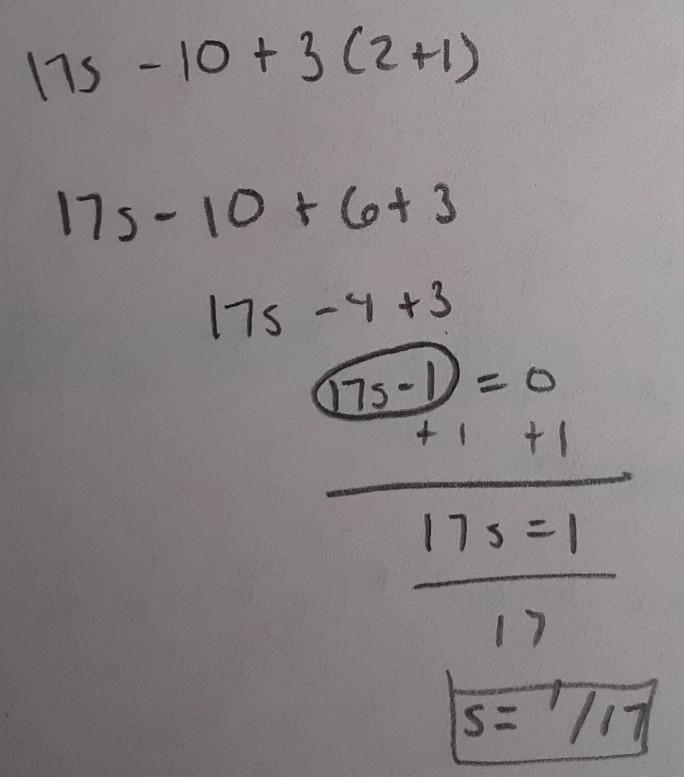 17s - 10 + 3(2+1)
17s - 10 + 6 + 3
17s - 4 + 3
17s - 1 = 0
+ 1 +1
17s = 1
17
s = 1/17